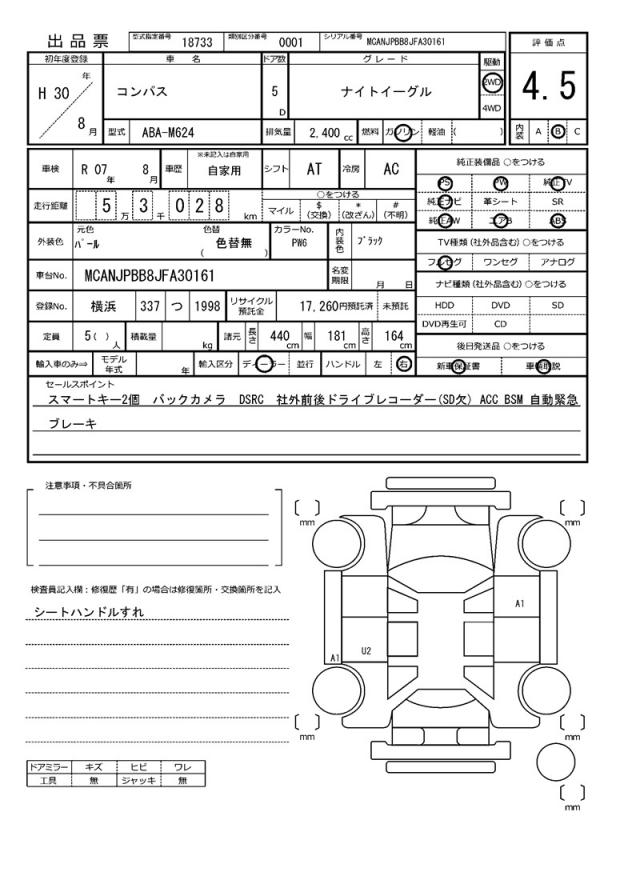 出品票 型式指定番号 18733 類別区分番号 0001 シリアル番号 MCANJPBB8JFA30161 評価点
初年度登録 車名 ドア数 グレード 駆動
H 30 年 コンパス 5 D ナイトイーグル 2WD 4.5
4WD
8 月 型式 ABA-M624 排気量 2,400 cc 燃料 ガソリン 軽油 ( ) 内装 A B C
車検 R 07 年 8 月 車歴 ※未記入は自家用 自家用 シフト AT 冷房 AC 純正装備品 ○をつける
PS PW 純正TV
走行距離 5 万 3 千 0 2 8 km ○をつける 純正ナビ 革シート SR
マイル $ (交換) * (改ざん) # (不明) 純正AW エアB ABS
外装色 元色 パール 色替 色替無 ( ) カラーNo. PW6 内装色 ブラック TV種類 (社外品含む) ○をつける
フルセグ ワンセグ アナログ
車台No. MCANJPBB8JFA30161 名変期限 月 日 ナビ種類 (社外品含む) ○をつける
登録No. 横浜 337 つ 1998 リサイクル預託金 17,260円預託済 未預託 HDD DVD SD
DVD再生可 CD
定員 5( ) 人 積載量 kg 諸元 長さ 440 cm 幅 181 cm 高さ 164 cm 後日発送品 ○をつける
輸入車のみ⇒ モデル年式 年 輸入区分 ディーラー 並行 ハンドル 左 右 新車保証書 車輌取説
セールスポイント
スマートキー2個 バックカメラ DSRC 社外前後ドライブレコーダー(SD欠) ACC BSM 自動緊急
ブレーキ
注意事項・不具合箇所
mm mm
検査員記入欄：修復歴「有」の場合は修復箇所・交換箇所を記入
シートハンドルすれ
A1
U2
A1
mm mm
ドアミラー キズ ヒビ ワレ
工具 無 ジャッキ 無
mm